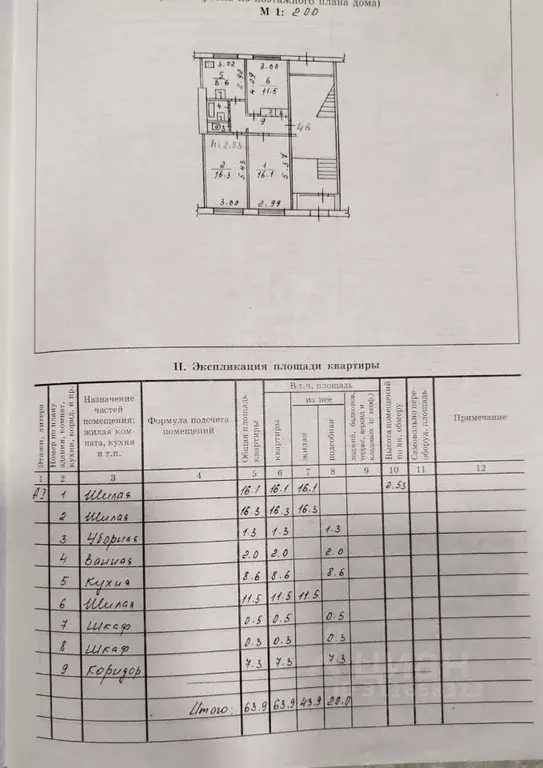 поэтажного плана дома)
М 1: 200
3.02
3.00
5
8.6
2.90
4.09
6
11.5
4
3
9
46
h=2.53
2
16.3
5.43
1
16.1
5.37
3.00
2.99
II. Экспликация площади квартиры
Этажи, литера
Номер по плану здания, комнат, кухни, корид. и пр.
Назначение частей помещения: жилая комната, кухня и т.п.
Формула подсчета помещений
Общая площадь квартиры
В т.ч. площадь
квартиры
из нее
жилая
подсобная
лоджий, балконов, террас, веранд и кладовых (с коэф.)
Высота помещений по вн. обмеру
Самовольно переоборуд. площадь
Примечание
1 2 3 4 5 6 7 8 9 10 11 12
1 Жилая 16.1 16.1 16.1 2.53
2 Жилая 16.3 16.3 16.3
3 Уборная 1.3 1.3 1.3
4 Ванная 2.0 2.0 2.0
5 Кухня 8.6 8.6 8.6
6 Жилая 11.5 11.5 11.5
7 Шкаф 0.5 0.5 0.5
8 Шкаф 0.3 0.3 0.3
9 Коридор 7.3 7.3 7.3
Итого: 63.9 63.9 43.9 20.0